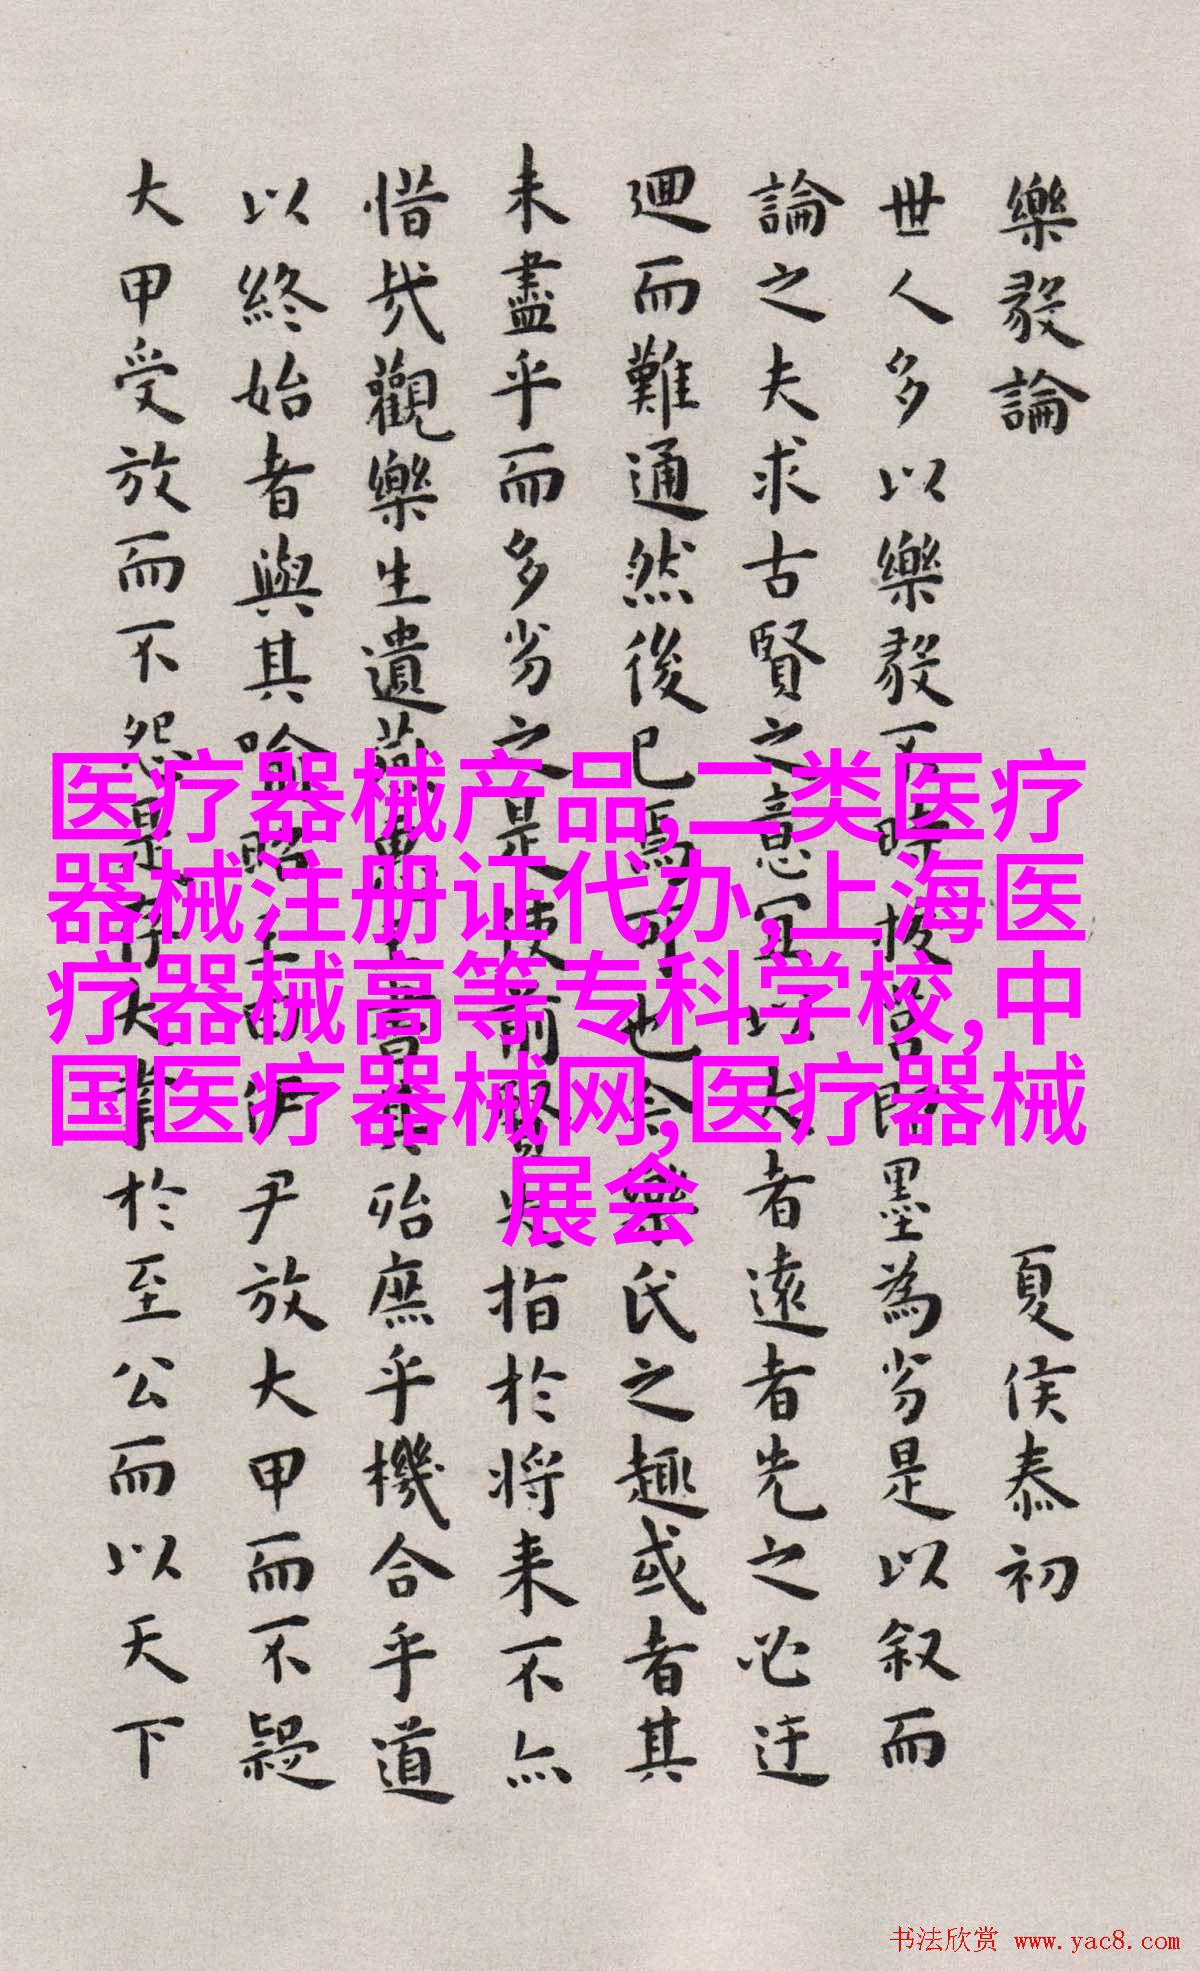 樂毅論 夏侯泰初
世人多以樂毅不時拔營即墨為劣是以叙而
論之夫求古賢之意宜以大者遠者先之必迂
迴而難通然後已焉可也今樂氏之趣或者其
未盡乎而多劣之是使前賢失指於將来不亦
惜哉觀樂生遺燕惠王書其殆庶乎機合乎道
以終始者與其喻昭王曰伊尹放大甲而不疑
大甲受放而不怨是存大業於至公而以天下
医疗器械产品,二类医疗
器械注册证代办,上海医
疗器械高等专科学校,中
国医疗器械网,医疗器械
展会
书法欣赏 www.yac8.com